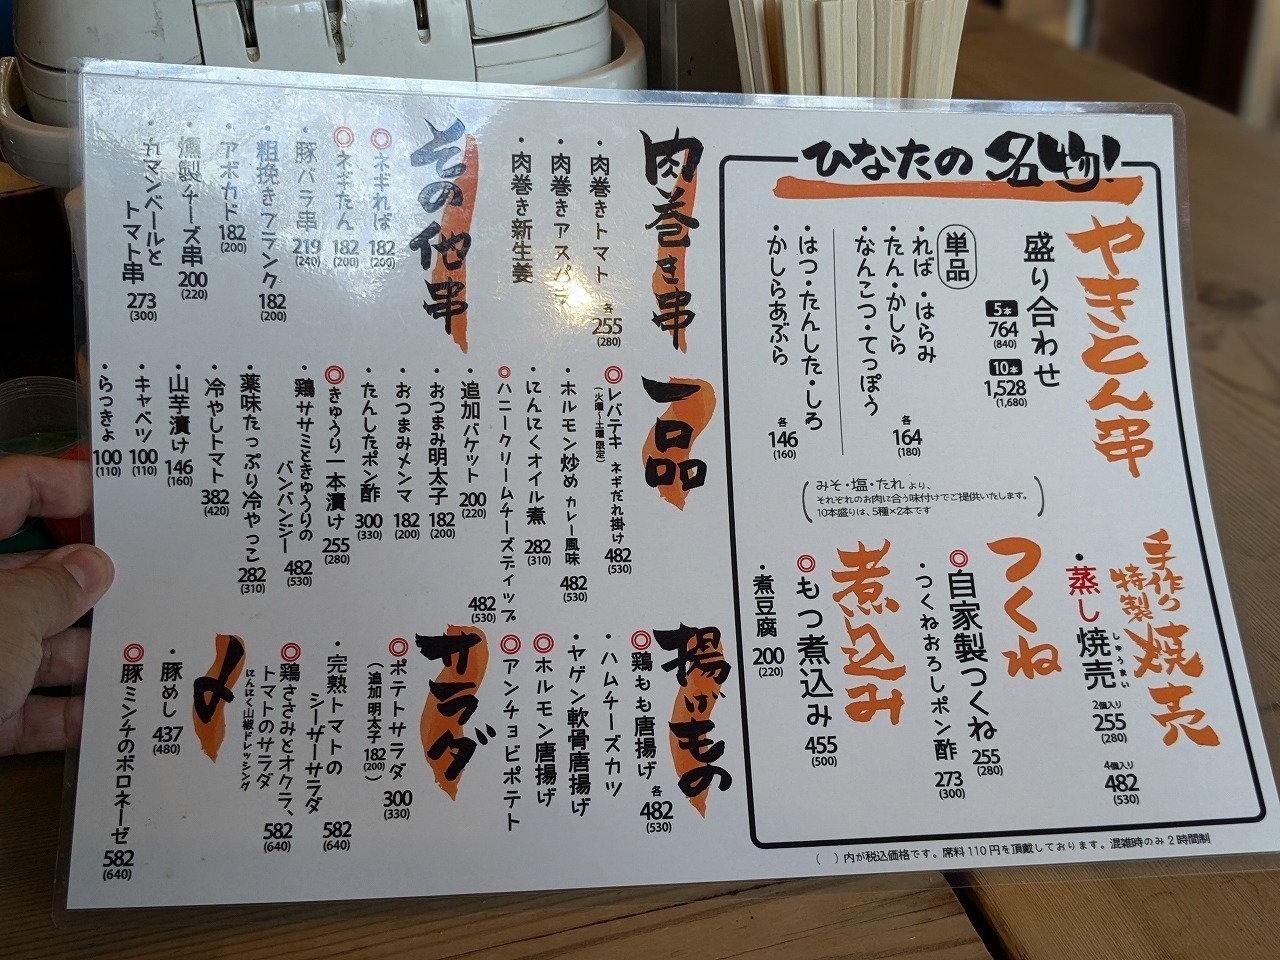 ひなたの名物!
やきとん串
盛り合わせ
5本
764
(840)
10本
1,528
(1,680)
単品
・れば・はらみ
・たん・かしら
・なんこつ・てっぽう
各
164
(180)
・はつ・たんした・しろ
・かしらあぶら
各
146
(160)
(みそ・塩・たれ より、
それぞれのお肉に合う味付けでご提供いたします。
10本盛りは、5種×2本です)
手作り
特製
焼売
・蒸し焼売
しゅうまい
2個入り
255
(280)
4個入り
482
(530)
つくね
◎自家製つくね 255
(280)
・つくねおろしポン酢 273
(300)
煮込み
◎もつ煮込み 455
(500)
・煮豆腐 200
(220)
( )内が税込価格です。席料110円を頂戴しております。混雑時のみ2時間制
肉巻き串
・肉巻きトマト
・肉巻きアスパラ
・肉巻き新生姜
各
255
(280)
その他串
◎ネギれば 182
(200)
◎ネギたん 182
(200)
・豚バラ串 219
(240)
・粗挽きフランク 182
(200)
・アボカド 182
(200)
・燻製チーズ串 200
(220)
・カマンベールと
トマト串 273
(300)
一品
◎レバテキ ネギだれ掛け 482
(530)
(火曜~土曜限定)
・ホルモン炒め カレー風味 482
(530)
・にんにくオイル煮 282
(310)
◎ハニークリームチーズディップ 482
(530)
・追加バケット 200
(220)
・おつまみ明太子 182
(200)
・おつまみメンマ 182
(200)
・たんしたポン酢 300
(330)
◎きゅうり一本漬け 255
(280)
・鶏ササミときゅうりの
バンバンジー 482
(530)
・薬味たっぷり冷やっこ 282
(310)
・冷やしトマト 382
(420)
・山芋漬け 146
(160)
・キャベツ 100
(110)
・らっきょ 100
(110)
揚げもの
◎鶏もも唐揚げ
・ハムチーズカツ
・ヤゲン軟骨唐揚げ
◎ホルモン唐揚げ
◎アンチョビポテト
各
482
(530)
サラダ
◎ポテトサラダ 300
(330)
(追加明太子 182
(200))
・完熟トマトの
シーザーサラダ 582
(640)
◎鶏ささみとオクラ、
トマトのサラダ 582
(640)
にんにく山椒ドレッシング
〆
・豚めし 437
(480)
◎豚ミンチのボロネーゼ 582
(640)